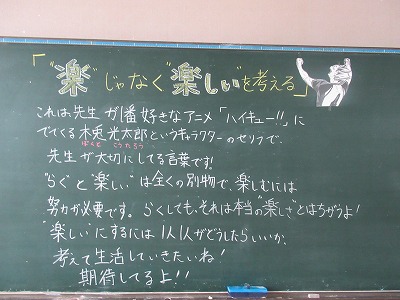 「"楽"じゃなく"楽しい"を考える」
これは、先生が1番好きなアニメ「ハイキュー!!」に
でてくる木兎光太郎というキャラクターのセリフで、
ぼくと こうたろう
先生が大切にしてる言葉です!
"らく"と"楽しい"は全くの別物で、楽しむには
努力が必要です。らくしても、それは本当の"楽しさ"とはちがうよ!
"楽しい"にするには1人1人がどうしたらいいか、
考えて生活していきたいね!
期待してるよ!!